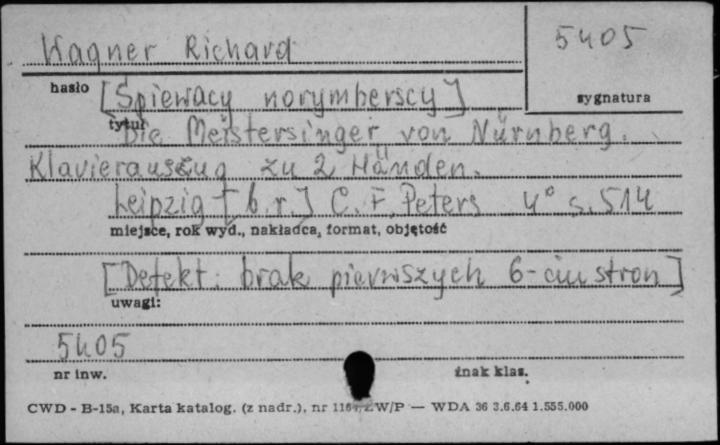 Wagner Richard
5405
hasło
[Śpiewacy norymberscy]
sygnatura
tytuł
Die Meistersinger von Nürnberg.
Klavierauszug zu 2 Händen.
Leipzig [b.r.] C. F. Peters 4° s. 514
miejsce, rok wyd., nakładca, format, objętość
[Defekt: brak pierwszych 6-ciu stron]
uwagi:
5405
nr inw.
znak klas.
CWD - B-15a, Karta katalog. (z nadr.), nr ZW/P — WDA 36 3.6.64 1.555.000